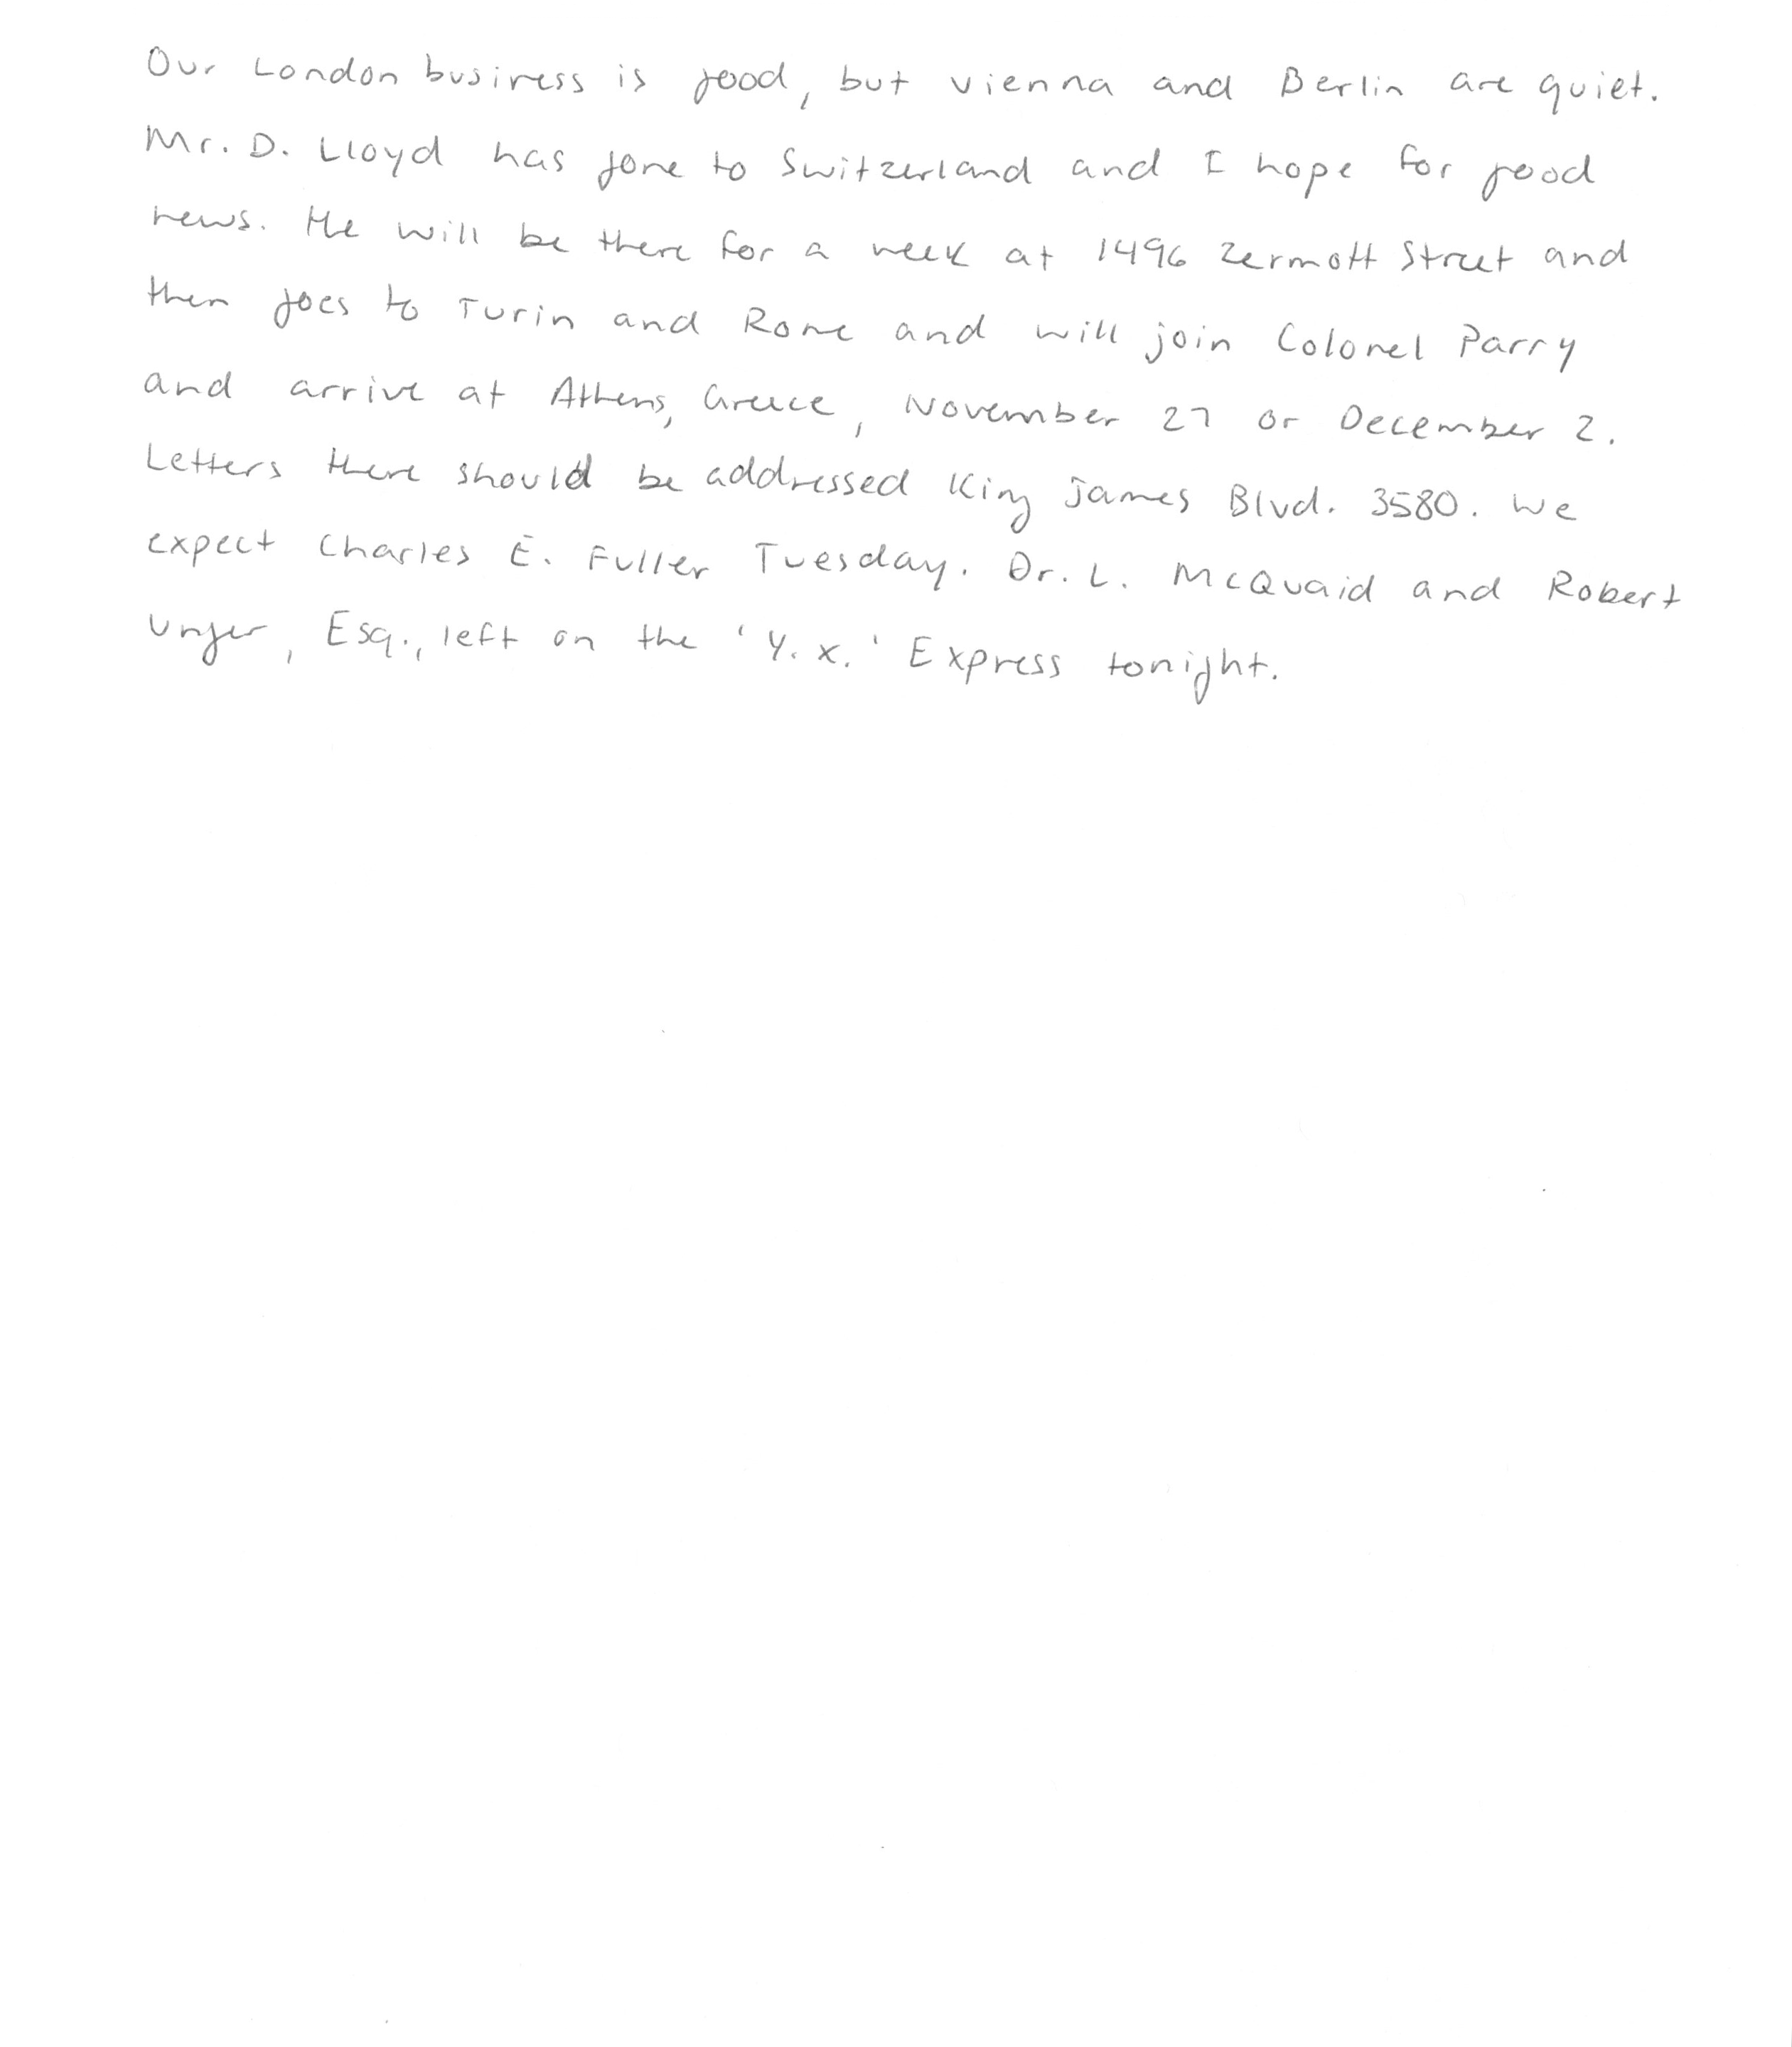 Our London business is good, but Vienna and Berlin are quiet.
Mr. D. Lloyd has gone to Switzerland and I hope for good
news. He will be there for a week at 1496 Zermott Street and
then goes to Turin and Rome and will join Colonel Parry
and arrive at Athens, Greece, November 27 or December 2.
Letters there should be addressed King James Blvd. 3580. We
expect Charles E. Fuller Tuesday. Dr. L. McQuaid and Robert
Unger, Esq., left on the 'Y.X.' Express tonight.